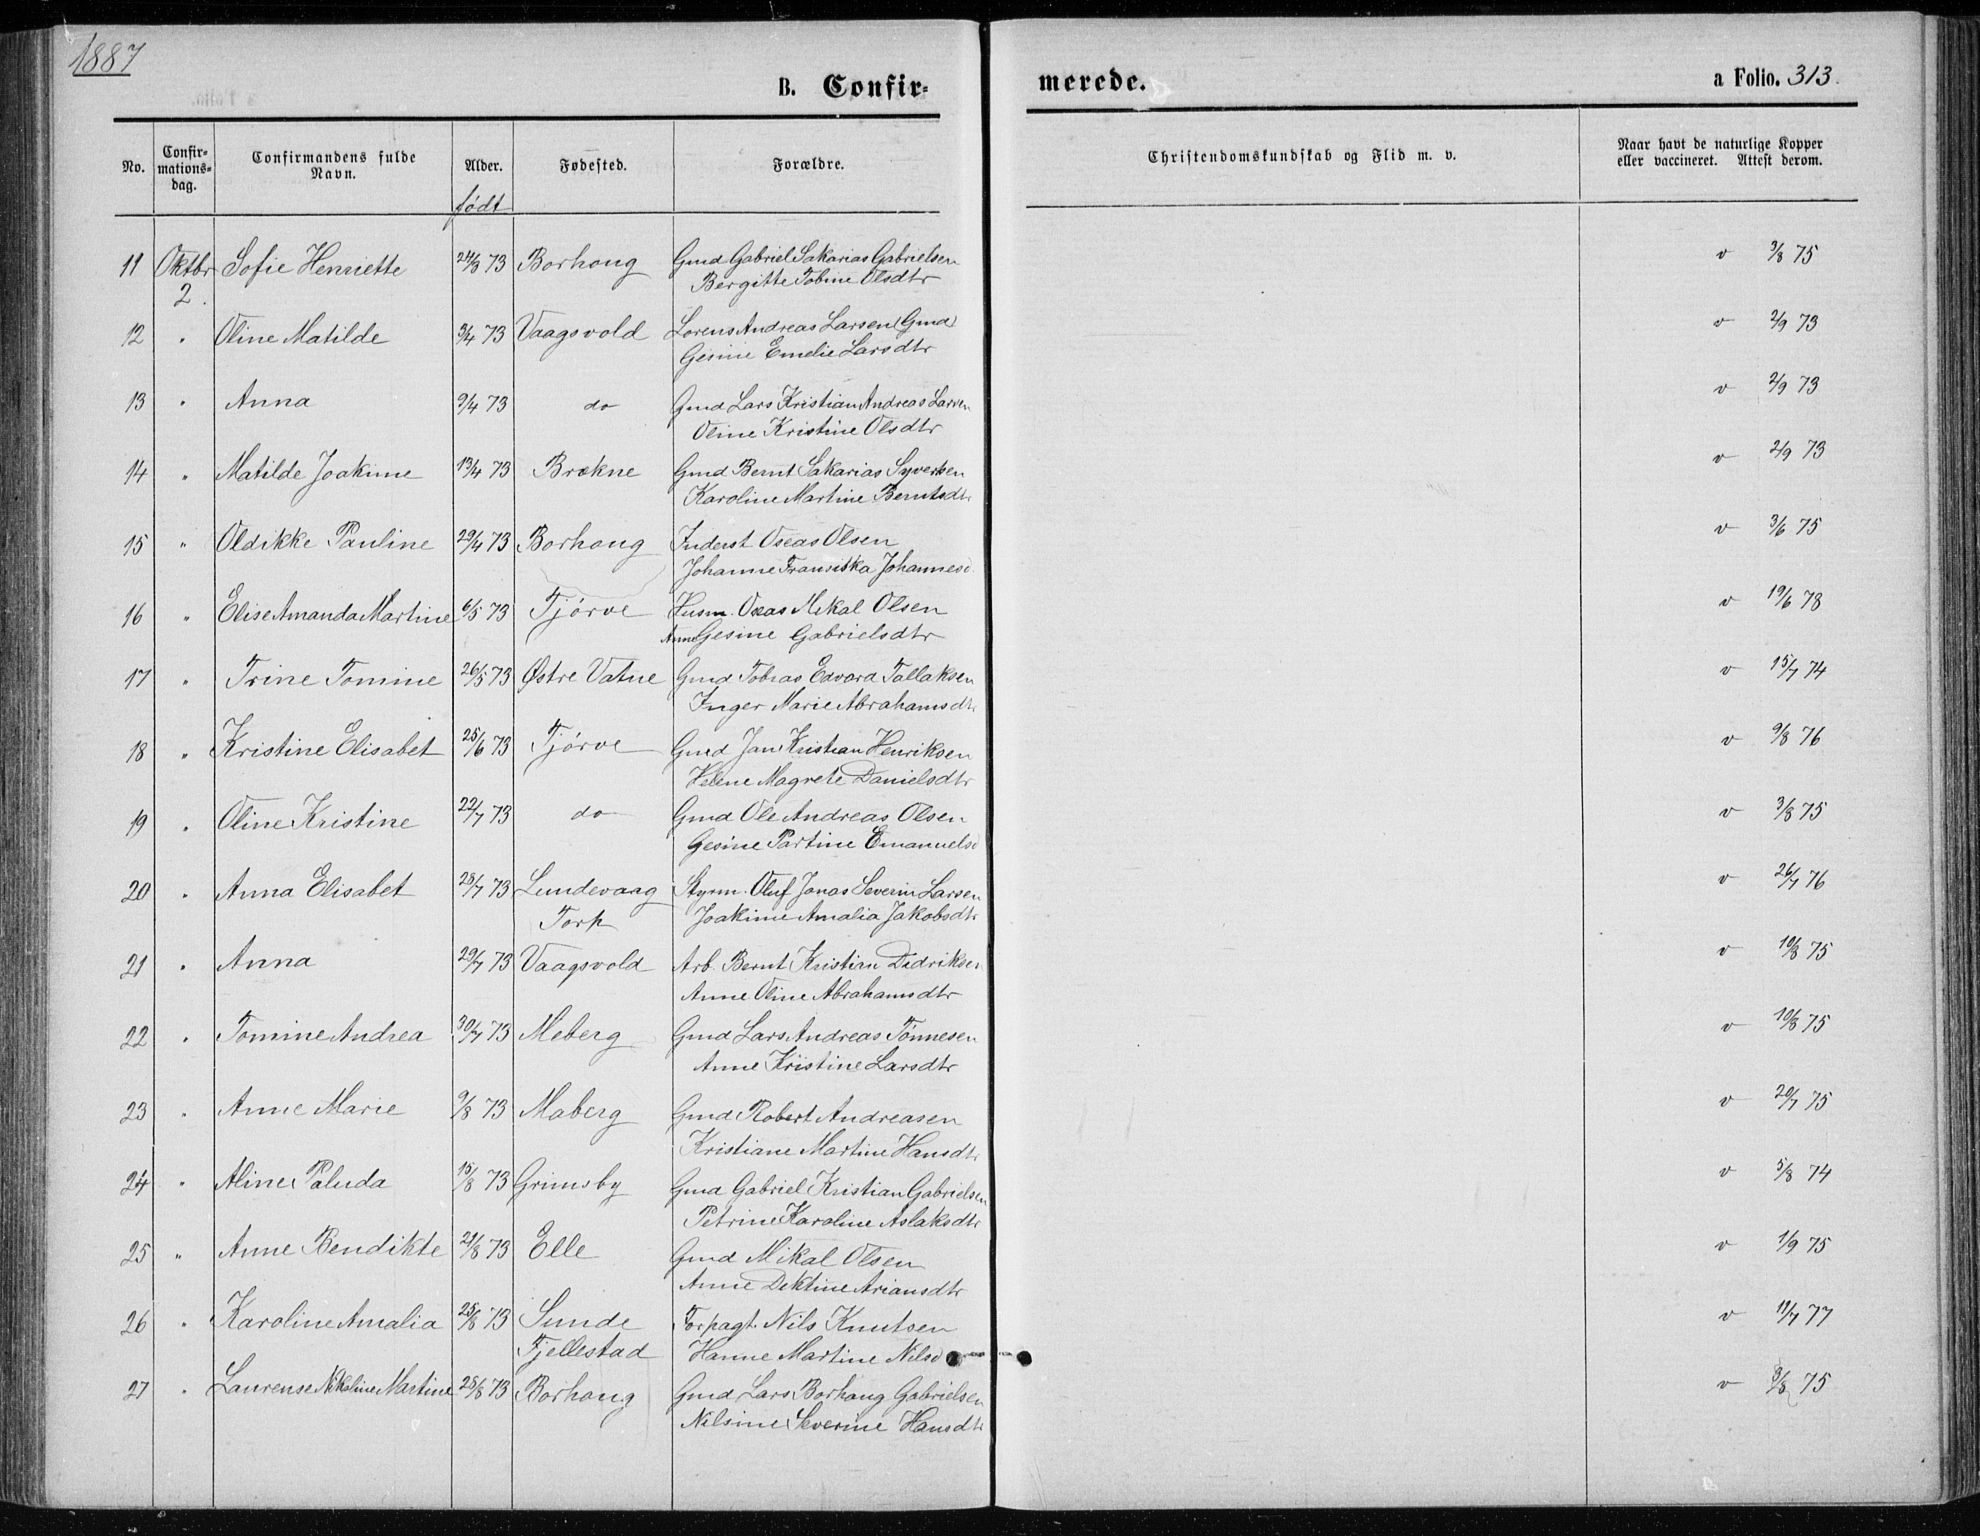 1887
B. Confir-
merede.
a Folio. 313.
No.
Confir-
mations-
dag.
Confirmandens fulde
Navn.
Alder.
født
Fødested.
Forældre.
Christendomskundskab og Flid m. v.
Naar havt de naturlige Kopper
eller vaccineret. Attest derom.
11 Oktbr Sofie Henriette 24/3 73 Borhoug Gmd Gabriel Sakarias Gabrielsen v 3/8 75
2. Bergitte Tobine Olsdtr
12 " Oline Matilde 3/4 73 Vaagsvold Lorens Andreas Larsen (Gmd) v 2/9 73
Gesine Emelie Larsdtr
13 " Anna 9/4 73 do Gmd Lars Kristian Andreas Larsen v 2/9 73
Oline Kristine Olsdtr
14 " Matilde Joakime 13/4 73 Brækne Gmd Bernt Sakarias Syvertsen v 2/9 73
Karoline Martine Berntsdtr
15 " Oldikke Pauline 29/4 73 Borhoug Inderst Oseas Olsen v 3/6 75
Johanne Fransiska Johannesd
16 " Elise Amanda Martine 6/5 73 Tjørve Husm. Oseas Mikal Olsen v 19/6 78
Anne Gesine Gabrielsdtr
17 " Trine Tomine 26/5 73 Østre Vatne Gmd Tobias Edvard Tallaksen v 15/7 74
Inger Marie Abrahamsdtr
18 " Kristine Elisabet 25/6 73 Tjørve Gmd Jan Kristian Henriksen v 9/8 76
Helene Magrete Danielsdtr
19 " Oline Kristine 22/7 73 do Gmd Ole Andreas Olsen v 3/8 75
Gesine Partine Emanuelsd
20 " Anna Elisabet 28/7 73 Lundevaag Styrm. Oluf Jonas Severin Larsen v 26/7 76
Torp Joakime Amalia Jakobsdtr
21 " Anna 29/7 73 Vaagsvold Arb. Bernt Kristian Didriksen v 10/8 75
Anne Oline Abrahamsdtr
22 " Tomine Andrea 30/7 73 Meberg Gmd Lars Andreas Tønnesen v 10/8 75
Anne Kristine Larsdtr
23 " Anne Marie 9/8 73 Maberg Gmd Robert Andreasen v 20/7 75
Kristiane Martine Hansdtr
24 " Aline Paluda 15/8 73 Grimsby Gmd Gabriel Kristian Gabrielsen v 5/8 74
Petrine Karoline Aslaksdtr
25 " Anne Bendikte 21/8 73 Elle Gmd Mikal Olsen v 1/9 75
Anne Dektine Ariansdtr
26 " Karoline Amalia 25/8 73 Sunde Forpagt. Nils Knutsen v 11/7 77
Fjellestad Hanne Martine Nilsd
27 " Laurense Nikoline Martine 25/8 73 Borhoug Gmd Lars Borhaug Gabrielsen v 3/8 75
Nilsine Severine Hansdtr